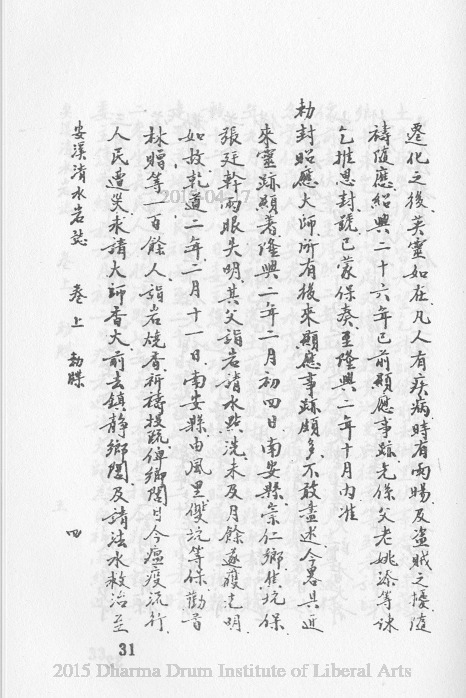 遷化之後英靈如在凡人有疾病時有雨暘及盜賊之擾隨
禱隨應紹興二十六年已前顯應事跡先係父老姚添等陳
乞推恩封號已蒙保奏至隆興二年十月內准
勅封昭應大師所有後來顯應事跡頗多不敢盡述今畧具近
來靈跡顯著隆興二年二月初四日南安縣崇仁鄉焦坑保
張廷幹兩眼失明其父詣岩請水點洗未及月餘遂復光明
如故乾道二年二月十一日南安縣由風里 坑等保勸首
林贈等一百餘人詣岩燒香祈禱投疏俾鄉閭 今瘟疫流行
人民遭災求請大師香火前去鎮靜鄉閭及請法水救治至
安溪清水岩誌 卷上 勅牒 四
31
2015-04-17
2015 Dharma Drum Institute of Liberal Arts